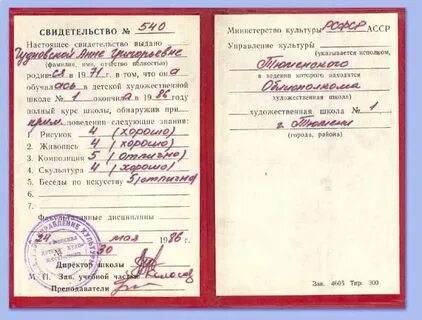 СВИДЕТЕЛЬСТВО № 540
Настоящее свидетельство выдано
Чудновской Анне Григорьевне
(фамилия, имя, отчество полностью)
родившейся в 1971 г. в том, что она
обучалась в детской художественной
школе № 1 окончила в 1986 году
полный курс школы, обнаружив при
прим. поведении следующие знания:
1. Рисунок 4 (хорошо)
2. Живопись 4 (хорошо)
3. Композиция 5 (отлично)
4. Скульптура 4 (хорошо)
5. Беседы по искусству 5 (отлично)
Факультативные дисциплины
мая 1986 г.
№ 30
Директор школы
М. П. Зав. учебной частью
Преподаватели
УПРАВЛЕНИЕ КУЛЬТУРЫ
Министерство культуры РСФСР АССР
Управление культуры
(указывается исполком,
Тюменского
в ведении которого находится
Облисполкома
художественная школа)
художественная школа № 1
г. Тюмени
(города, района)
Зак. 4605 Тир. 300